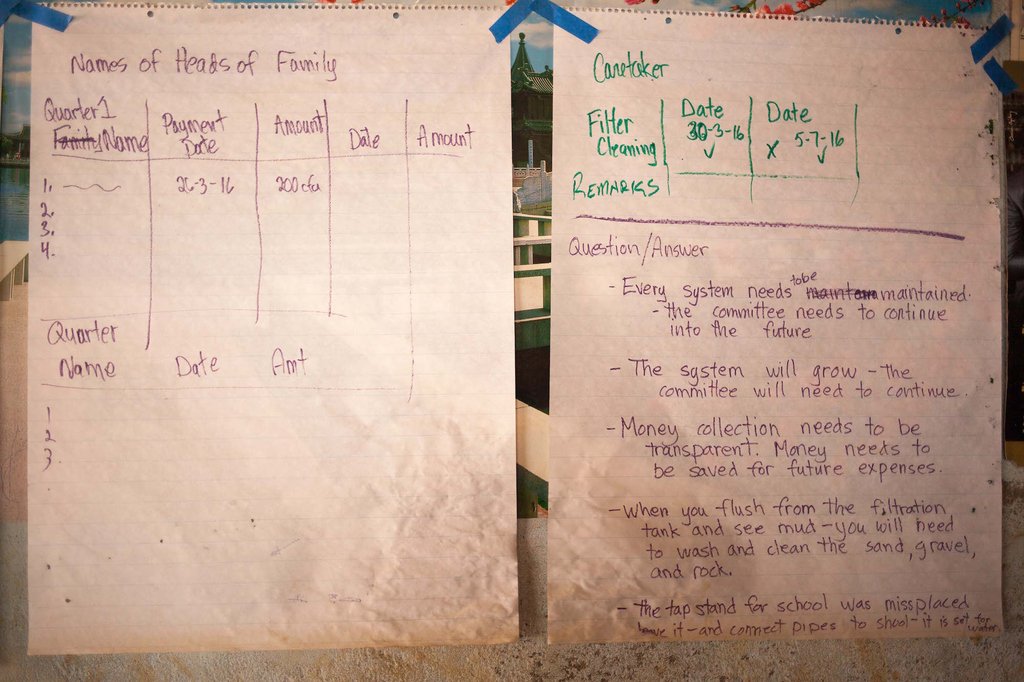 Names of Heads of Family
Quarter 1
Family Name
Payment Date
Amount
Date
Amount
1.
26-3-16
200 cfa
2.
3.
4.
Quarter
Name Date Amt
1
2
3.
Caretaker
Filter Cleaning
Date
30-3-16
✓
Date
x 5-7-16
✓
REMARKS
Question/Answer
- Every system needs to be maintained.
- the committee needs to continue
into the future
- The system will grow - the
committee will need to continue.
- Money collection needs to be
transparent. Money needs to
be saved for future expenses.
- When you flush from the filtration
tank and see mud - you will need
to wash and clean the sand, gravel,
and rock.
- the tap stand for school was missplaced
leave it - and connect pipes to shool - it is set for
water.